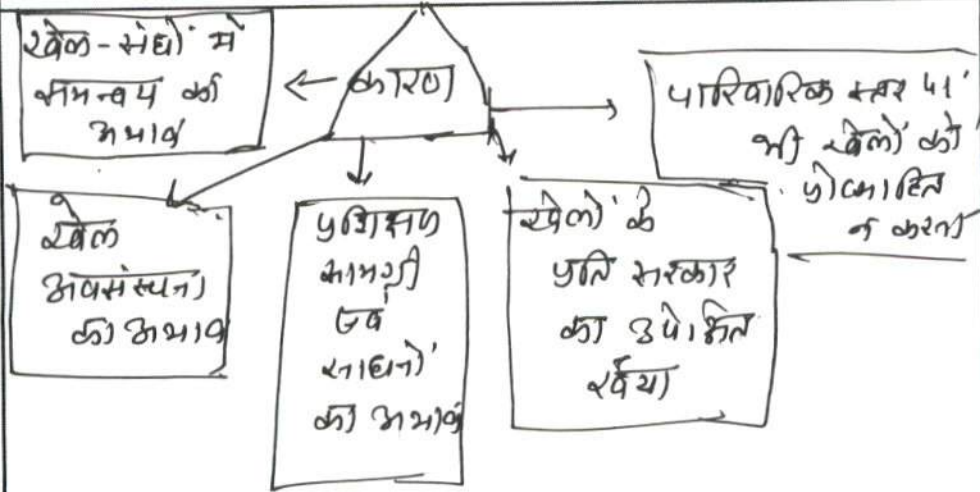 खेल-संघों में
समन्वय का
अभाव
कारण
पारिवारिक स्तर पर
भी खेलों को
प्रोत्साहित
न करना
खेल
अवसंरचना
का अभाव
प्रशिक्षण
सामग्री
एवं
साधनों
का अभाव
खेलों के
प्रति सरकार
का उपेक्षित
रवैया